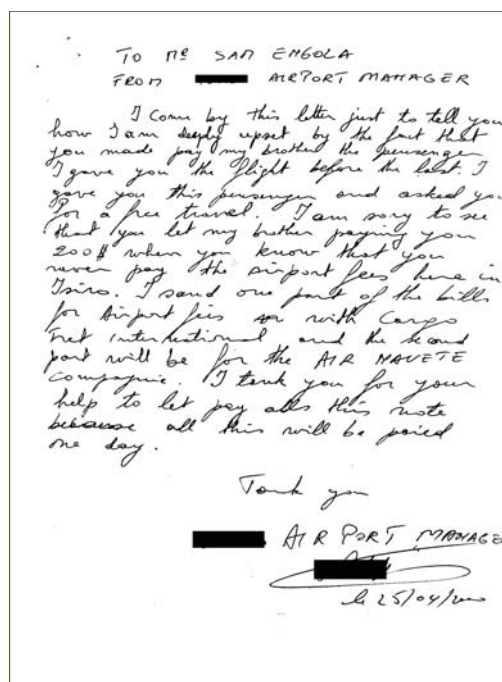 TO Mr SAM ENGOLA
FROM AIRPORT MANAGER
I Come by this letter just to tell you
how I am deeply upset by the fact that
you made pay my brother the penssenger
I gave you the flight before the last. I
gave you this penssenger and asked you
for a free travel. I am sory to see
that you let my brother paying you
200$ when you know that you
never pay the airport fees here in
Isiro. I send one part of the bills
for Airport fees with Cargo
Fret international and the second
part will be for the AIR NAVETE
Compagnie. I tank you for your
help to let pay alls this note
because all this will be paied
one day.
Tank you
AIR PORT MANAGER
le 25/04/2000